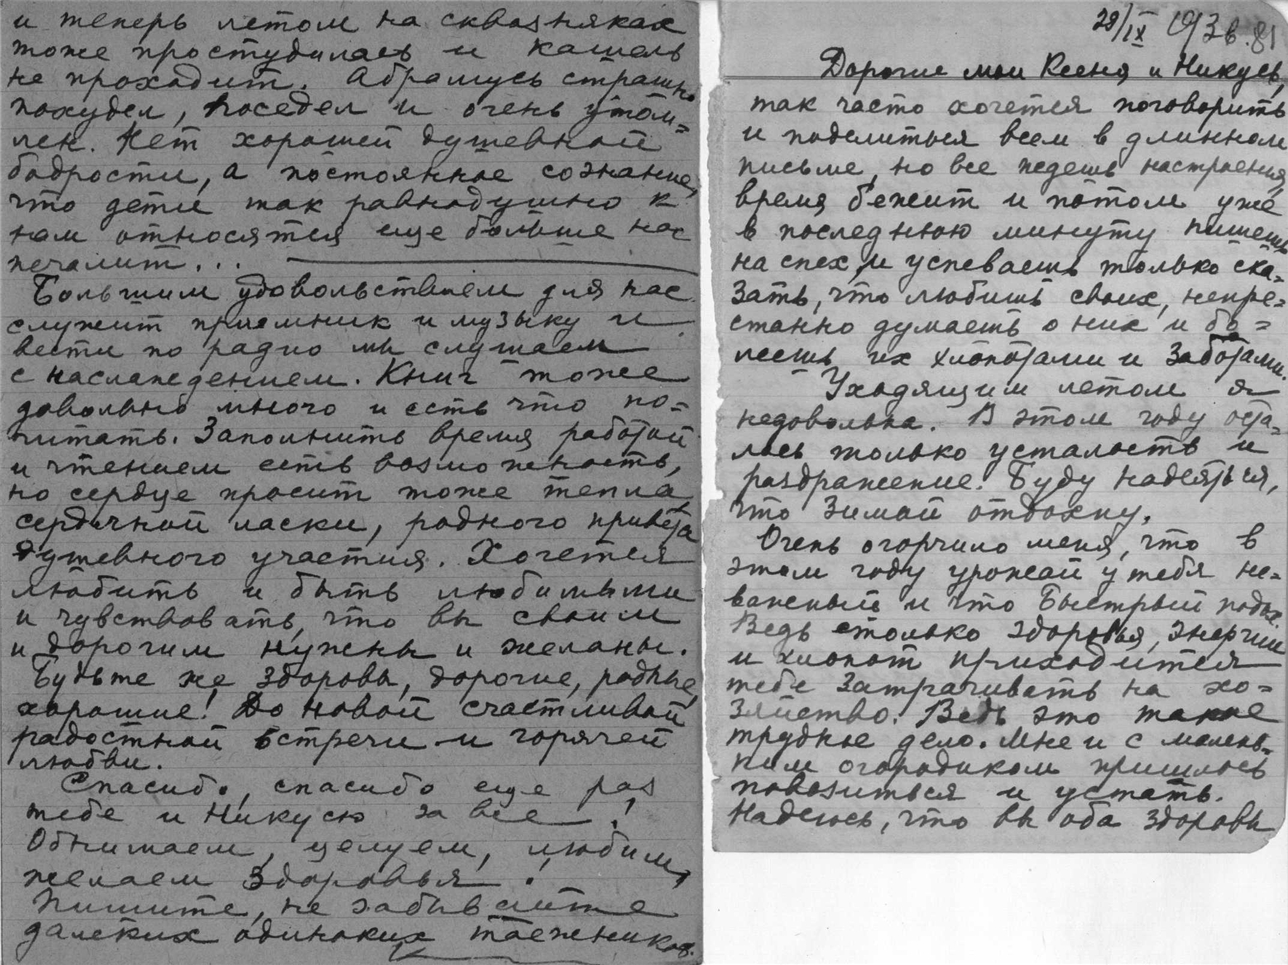 28/IX 1936. 81
Дорогие мои Ксеня и Никусь,
так часто хочется поговорить
и поделиться всем в длинном
письме, но все ждешь настроения
время бежит и потом уже
в последнюю минуту пишешь
на спех и успеваешь только ска-
зать, что любишь своих, непре-
станно думаешь о них и бо-
леешь их хлопотами и заботами.
Уходящим летом я
недовольна. В этом году оста-
лось только усталость и
раздражение. Буду надеяться,
что зимой отдохну.
Очень огорчило меня, что в
этом году урожай у тебя не-
важный и что Быстрый
Ведь столько здоровья, энергии
и хлопот приходится
тебе затрачивать на хо-
зяйство. Ведь это такое
трудное дело. Мне и с малень-
ким огородиком пришлось
повозиться и устать.
Надеюсь, что вы оба здоровы
и теперь летом на сквозняках
тоже простудилась и кашель
не проходит. Абрамусь страшно
похудел, поседел и очень утом-
лен. Нет хорошей душевной
бодрости, а постоянное сознание,
что дети так равнодушно к
нам относятся еще больше нас
печалит...
Большим удовольствием для нас
служит приемник и музыку и
вести по радио мы слушаем
с наслаждением. Книг тоже
довольно много и есть что по-
читать. Заполнить время работой
и чтением есть возможность,
но сердце просит тоже тепла
сердечной ласки, родного привета
душевного участия. Хочется
любить и быть любимыми
и чувствовать, что вы своим
и дорогим нужны и желаны.
Будьте же здоровы, дорогие, родные,
хорошие! До новой счастливой
радостной встречи и горячей
любви.
Спасибо, спасибо еще раз
тебе и Никусю за все!
Обнимаем, целуем, любим,
желаем здоровья!
Пишите, не забывайте
далеких одиноких таежников.